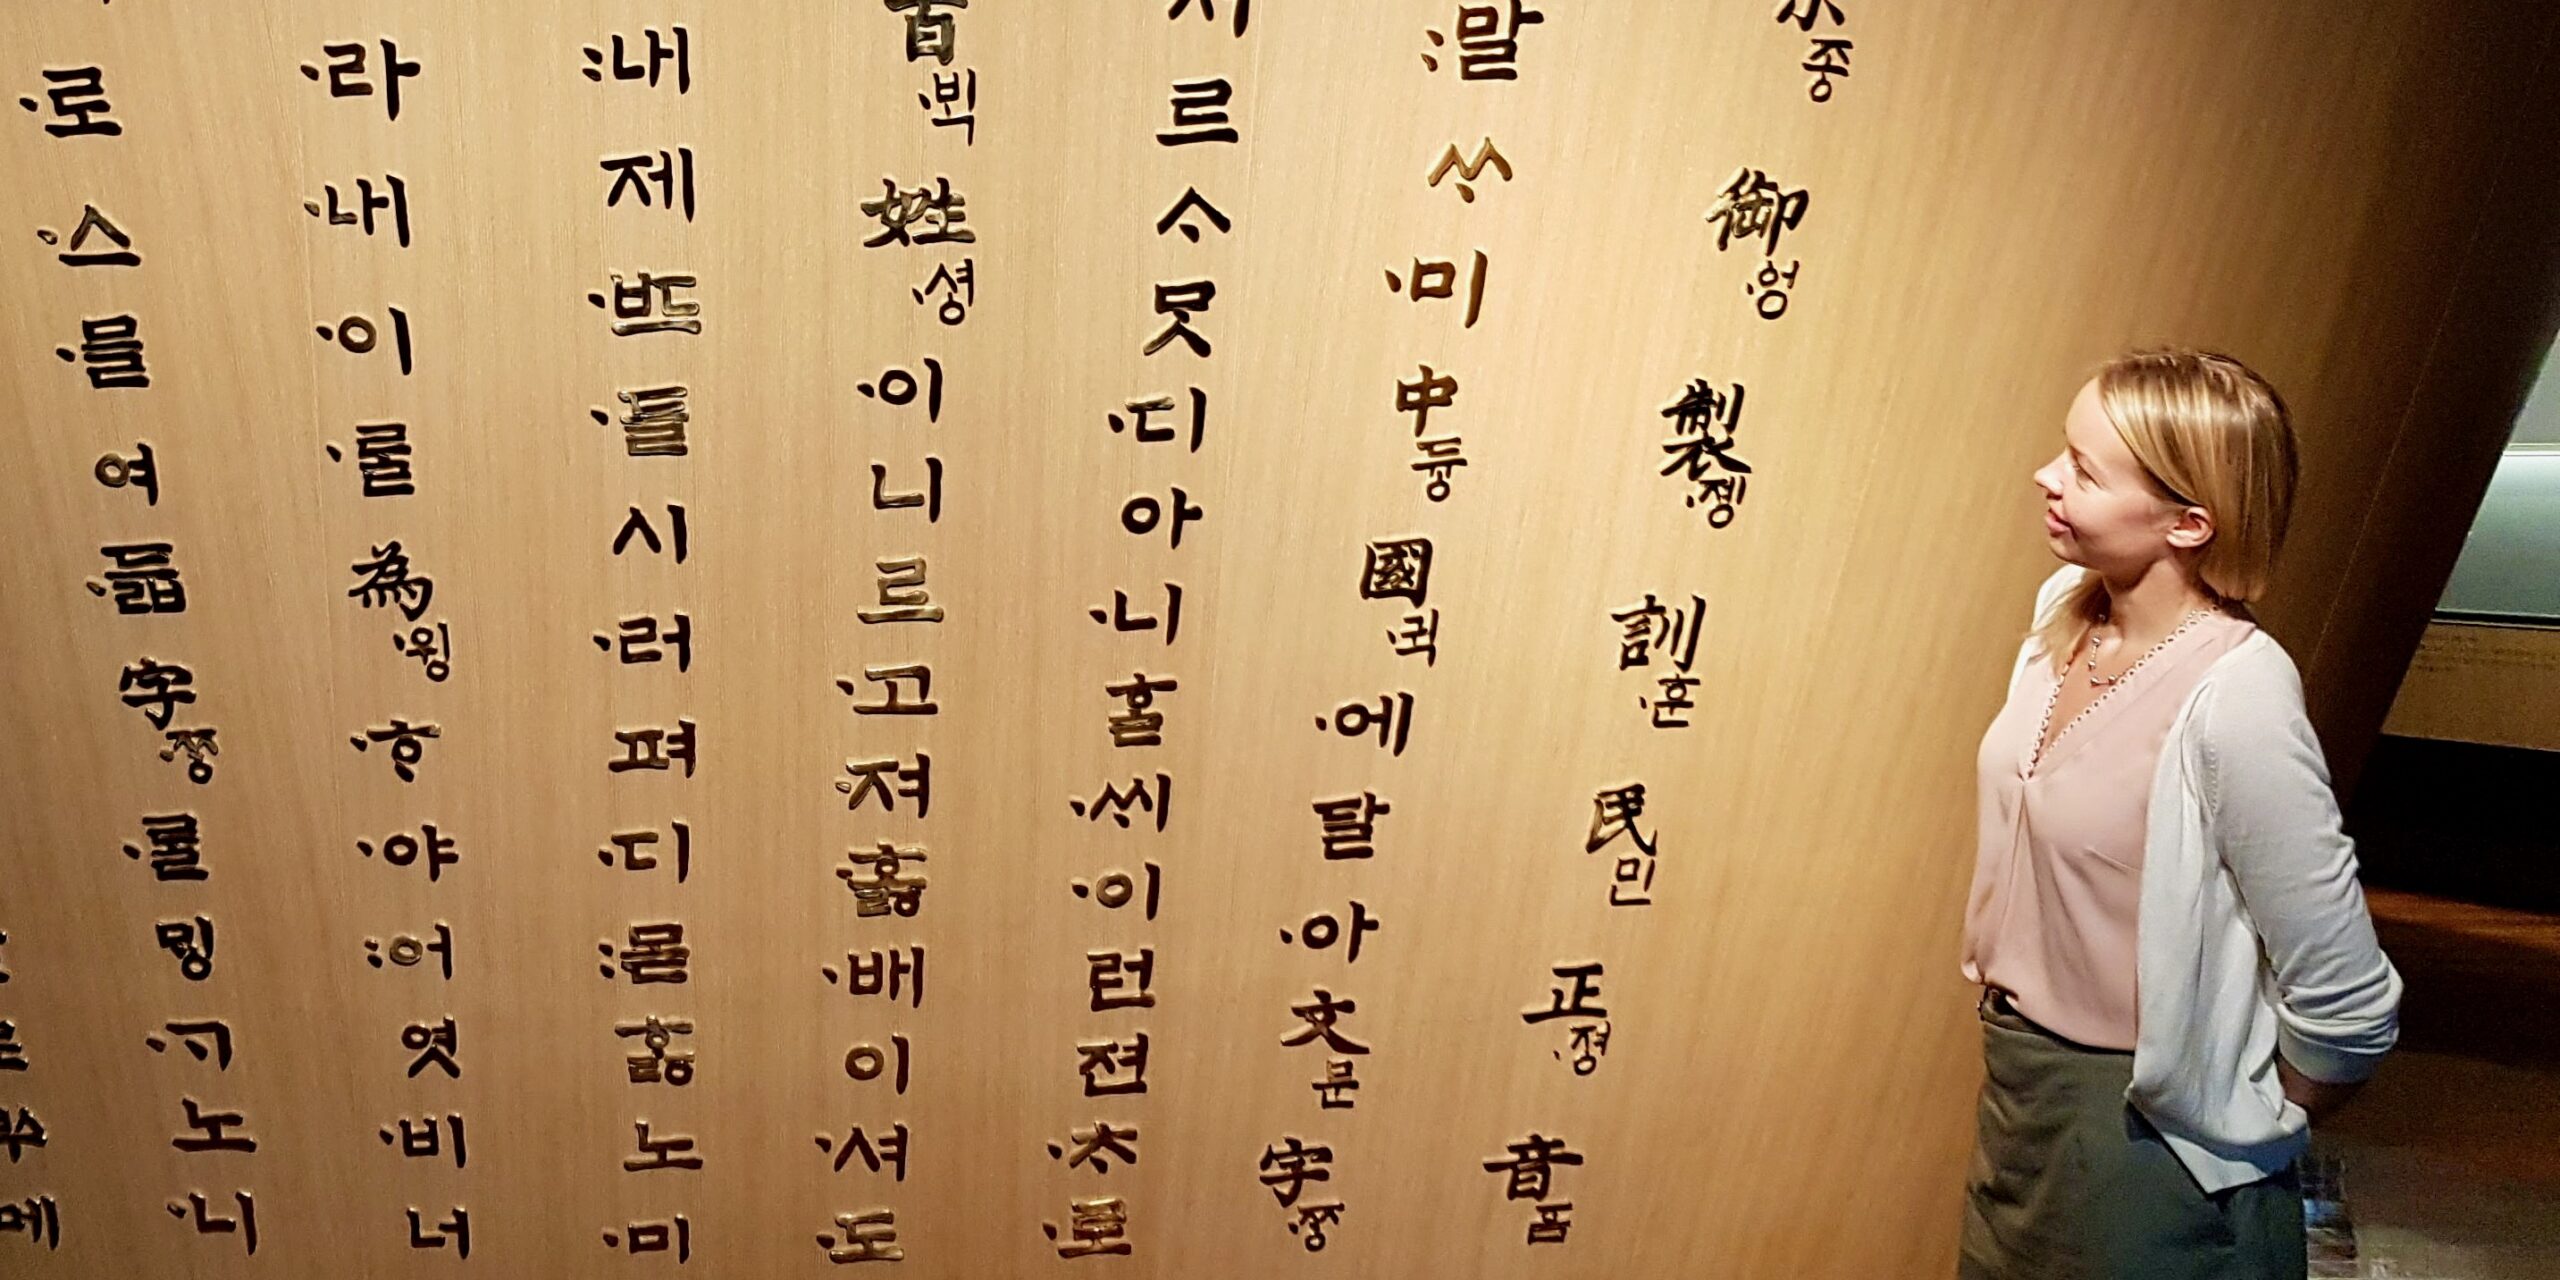 종御엉製졩訓훈民민正졍音ᅙᅳᆷ
말ᄊᆞ미中듕國귁에달아文문字ᄍᆞᆼ
르ᄉᆞᄆᆞᆺ디아니ᄒᆞᆯᄊᆡ이런젼ᄎᆞ로
百ᄇᆡᆨ姓셩이니르고져호ᇙ배이셔도
내제ᄠᅳ들시러펴디몯ᄒᆞᇙ노미
라내이ᄅᆞᆯ為윙ᄒᆞ야어엿비너
로스믈여듧字ᄍᆞᆼᄅᆞᆯᄆᆡᇰᄀᆞ노니